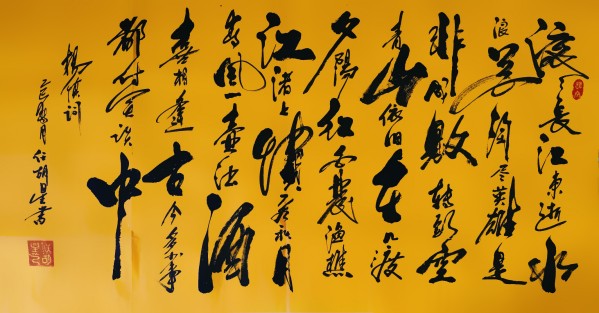 滚々長江東逝水
浪花淘尽英雄是
非成敗轉頭空
青山依旧在几度
夕陽红白髮漁樵
江渚上惯看秋月
春风一壶浊酒
喜相逢古今多少事
都付笑谈中
杨慎词
月
書